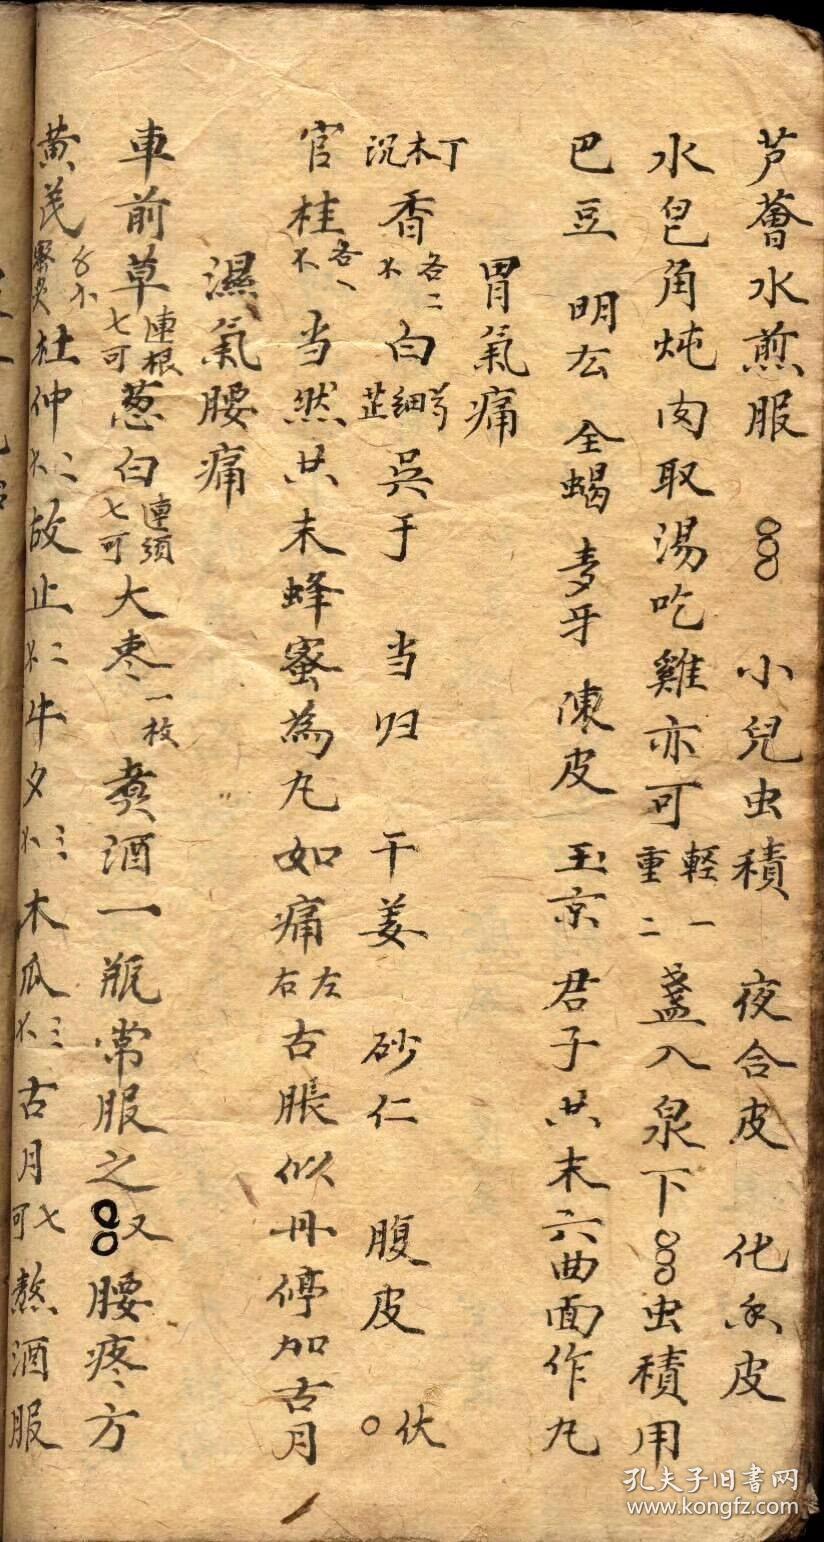 芦薈水煎服 小兒虫積 夜合皮 化水皮
水皂角炖肉取湯吃雞亦可輕一重二盞入泉下 虫積用
巴豆 明厷 全蝎 麦牙 陳皮 玉京 君子共末六曲面作丸
胃氣痛
丁木沉香各二不 白芍細芷 吳于 当归 干姜 砂仁 腹皮 伏
官桂各一不 当然共末蜂蜜為丸如痛左右古脹似丹停加古月
濕氣腰痛
車前草連根七可葱白連須七可大枣一枚 煑酒一瓶常服之 又腰疼方
黄芪 杜仲二不故止二不牛夕三不木瓜三不古月七可熬酒服
孔夫子旧書网
www.kongfz.com